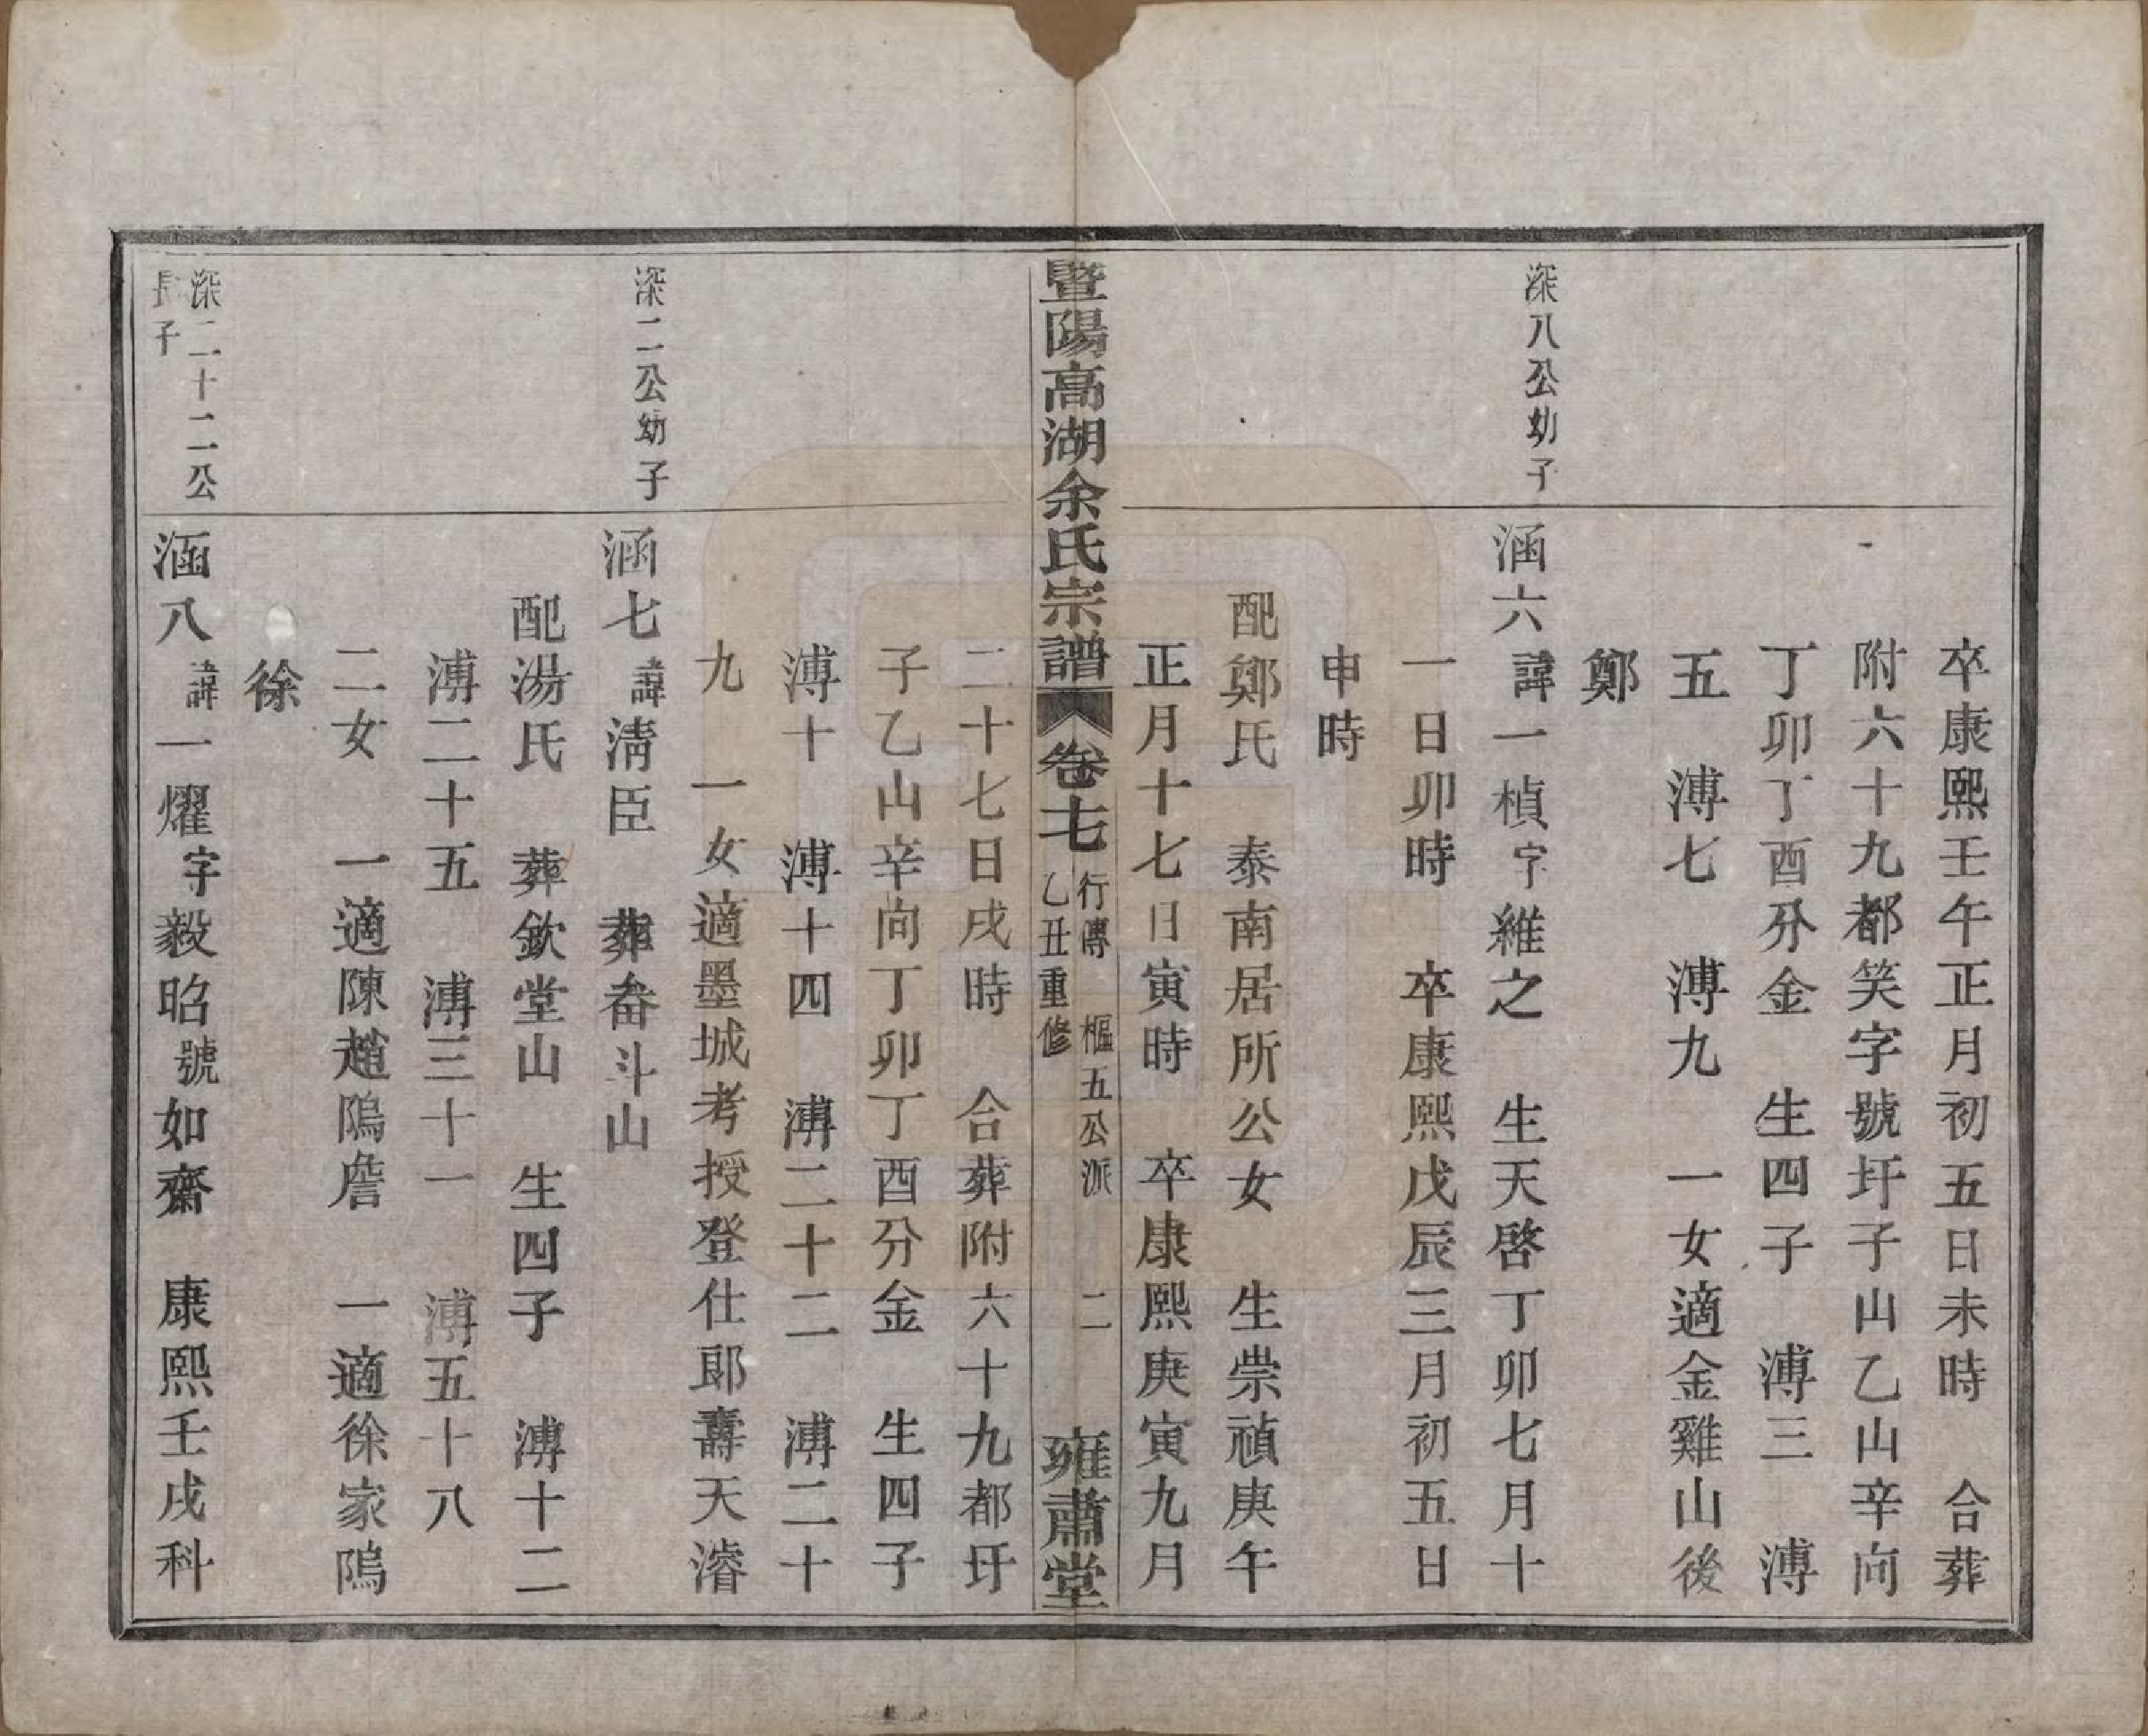 卒康熙壬午正月初五日未時　合葬
附六十九都笑字號圩子山乙山辛向
丁卯丁酉分金　生四子　溥三　溥
五　溥七　溥九　一女適金雞山後
鄭
深八公幼子
涵六諱一楨字維之　生天啓丁卯七月十
一日卯時　卒康熙戊辰三月初五日
申時
配鄭氏　泰南居所公女　生崇禎庚午
正月十七日寅時　卒康熙庚寅九月
暨陽高湖余氏宗譜　卷七　行傳　樞五公派　乙丑重修　二　雍肅堂
二十七日戌時　合葬附六十九都圩
子乙山辛向丁卯丁酉分金　生四子
溥十　溥十四　溥二十二　溥二十
九　一女適墨城考授登仕郎壽天濬
深二公幼子
涵七諱淸臣　葬畚斗山
配湯氏　葬欽堂山　生四子　溥十二
溥二十五　溥三十一　溥五十八
二女　一適陳趙隖詹　一適徐家隖
徐
深二十二公
長子
涵八諱一燿字毅昭號如齋　康熙壬戌科